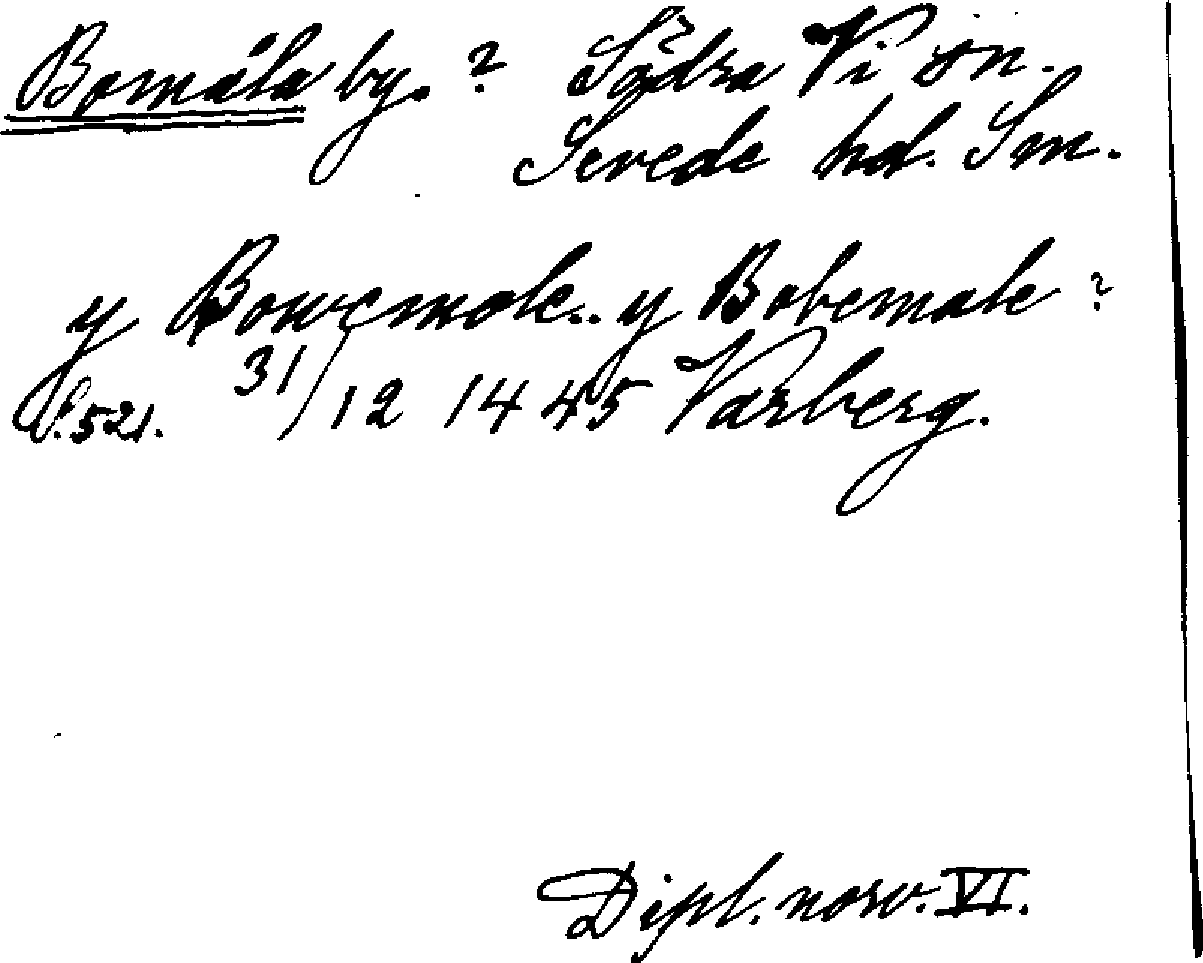 Bomåla by. ? Södra Vi sn.
Sevede hd. Sm.
y Bowemole.. y Bobemale ?
S. 521. 31/12 1445 Varberg.
Dipl. norv. VI.